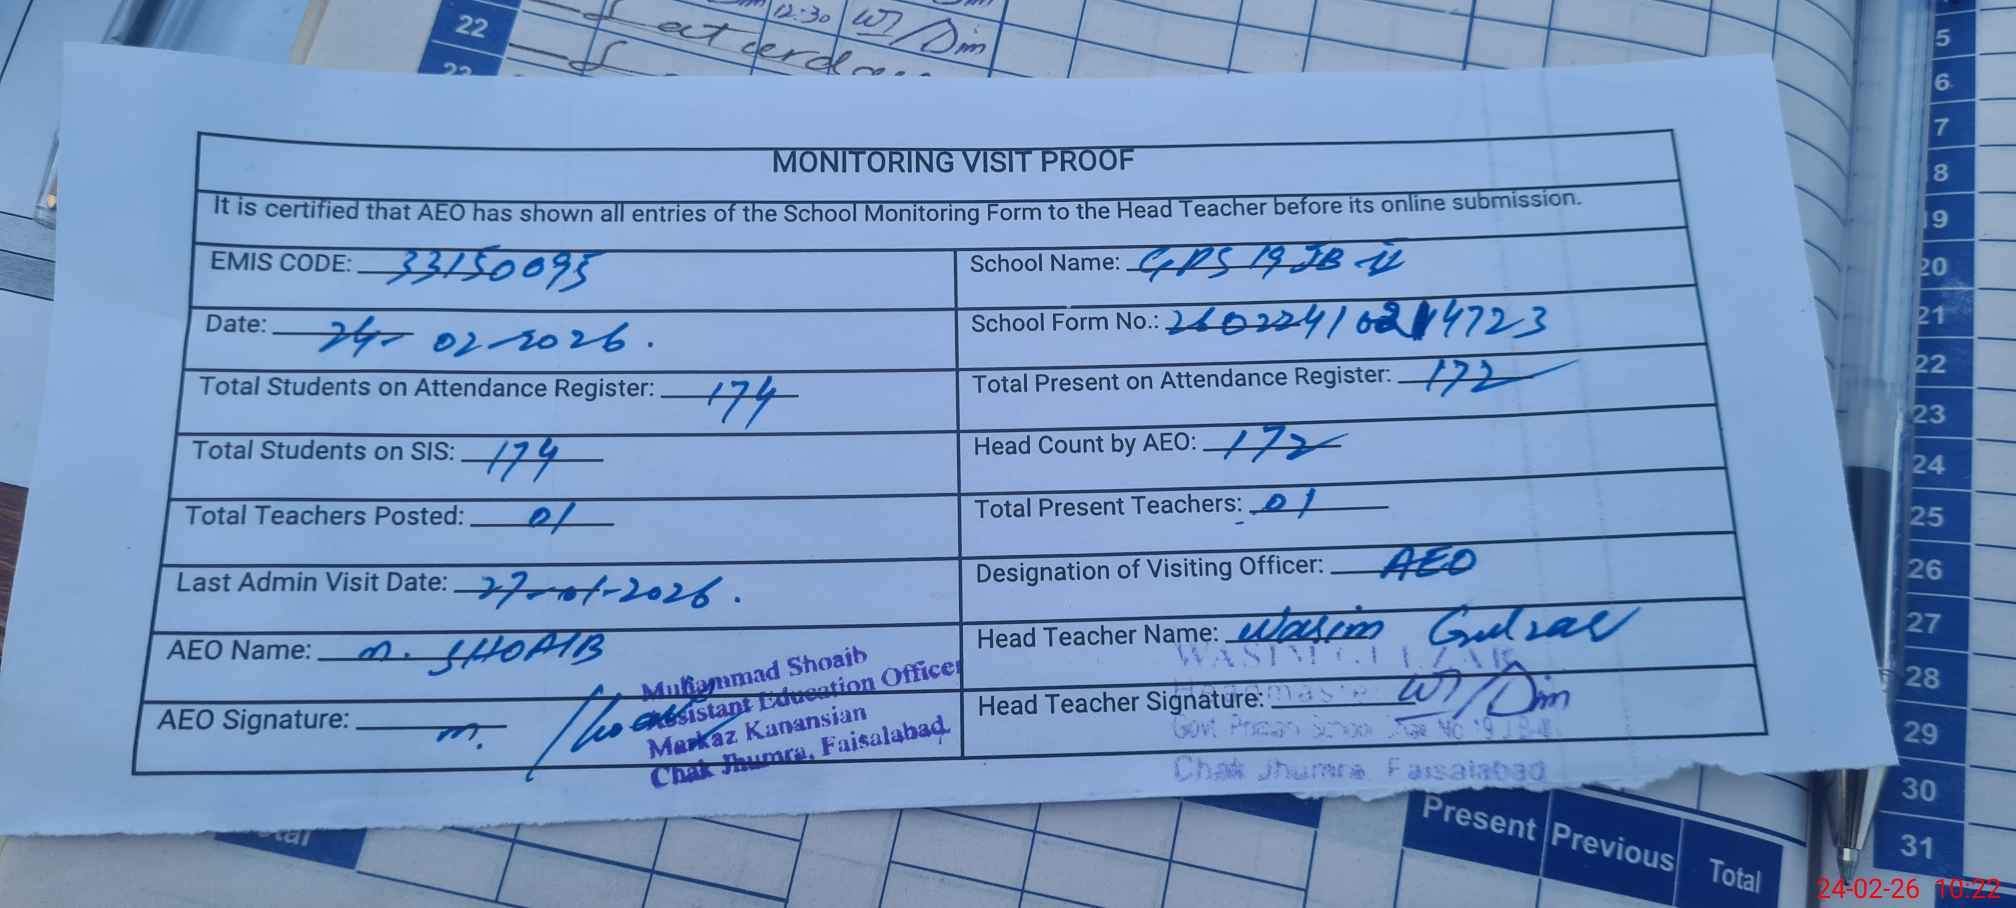 22
12:30 W/Dim
23
5
6
7
8
19
20
21
22
23
24
25
26
27
28
29
30
31
MONITORING VISIT PROOF
It is certified that AEO has shown all entries of the School Monitoring Form to the Head Teacher before its online submission.
EMIS CODE: 33150095
School Name: GPS 19 JB II
Date: 24-02-2026.
School Form No.:
Total Students on Attendance Register: 174
Total Present on Attendance Register: 172
Total Students on SIS: 174
Head Count by AEO: 172
Total Teachers Posted: 01
Total Present Teachers: 01
Last Admin Visit Date: 27-01-2026.
Designation of Visiting Officer: AEO
AEO Name: M. SHOAIB
Head Teacher Name: Wasim Gulzar
WASIM GULZAR
AEO Signature: M. Shoaib
Muhammad Shoaib
Assistant Education Officer
Markaz Kanansian
Chak Jhumra, Faisalabad.
Head Teacher Signature: W/Dim
Headmaster
Govt Primary School Chak No 19 J.B-II
Chak Jhumra Faisalabad
Present Previous Total
24-02-26 10:22